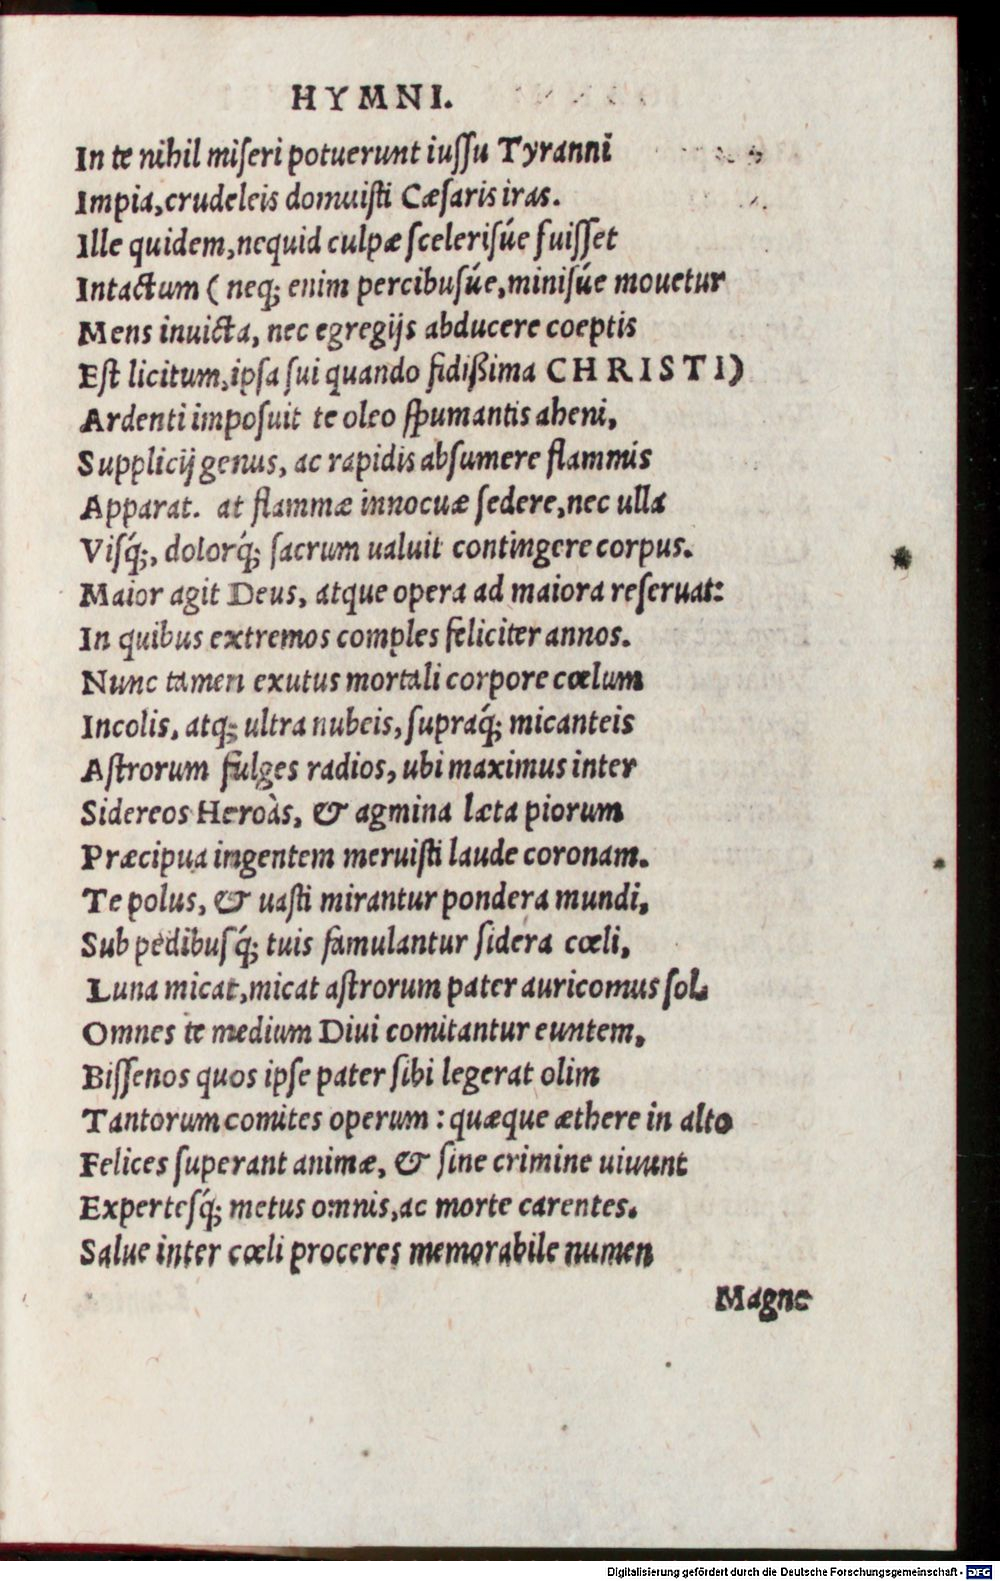 HYMNI.
In te nihil miseri potuerunt iussu Tyranni
Impia, crudeleis domuisti Cæsaris iras.
Ille quidem, nequid culpæ scelerisúe fuisset
Intactum ( neq; enim percibusúe, minisúe mouetur
Mens inuicta, nec egregijs abducere coeptis
Est licitum, ipsa sui quando fidißima CHRISTI)
Ardenti imposuit te oleo spumantis aheni,
Supplicij genus, ac rapidis absumere flammis
Apparat. at flammæ innocuæ sedere, nec ulla
Visq́;, dolorq́; sacrum ualuit contingere corpus.
Maior agit Deus, atque opera ad maiora reseruat:
In quibus extremos comples feliciter annos.
Nunc tamen exutus mortali corpore cœlum
Incolis, atq; ultra nubeis, supraq́; micanteis
Astrorum fulges radios, ubi maximus inter
Sidereos Heroàs, & agmina læta piorum
Præcipua ingentem meruisti laude coronam.
Te polus, & uasti mirantur pondera mundi,
Sub pedibusq́; tuis famulantur sidera cœli,
Luna micat, micat astrorum pater auricomus sol.
Omnes te medium Diui comitantur euntem,
Bissenos quos ipse pater sibi legerat olim
Tantorum comites operum : quæque æthere in alto
Felices superant animæ, & sine crimine uiuunt
Expertesq́; metus omnis, ac morte carentes.
Salue inter cœli proceres memorabile numen
Magne
Digitalisierung gefördert durch die Deutsche Forschungsgemeinschaft - DFG